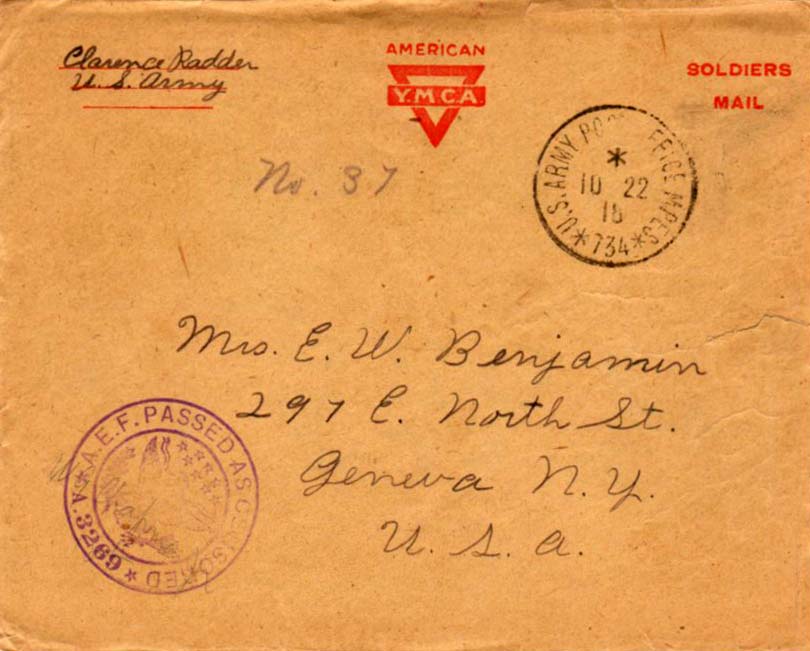 Clarence Radder
U. S. Army
AMERICAN
Y.M.C.A.
SOLDIERS
MAIL
No. 37
U.S. ARMY POST OFFICE MPES
10 22
18
* 734 *
Mrs. E. W. Benjamin
297 E. North St.
Geneva N. Y.
U. S. A.
A.E.F. PASSED AS CENSORED
A.3269